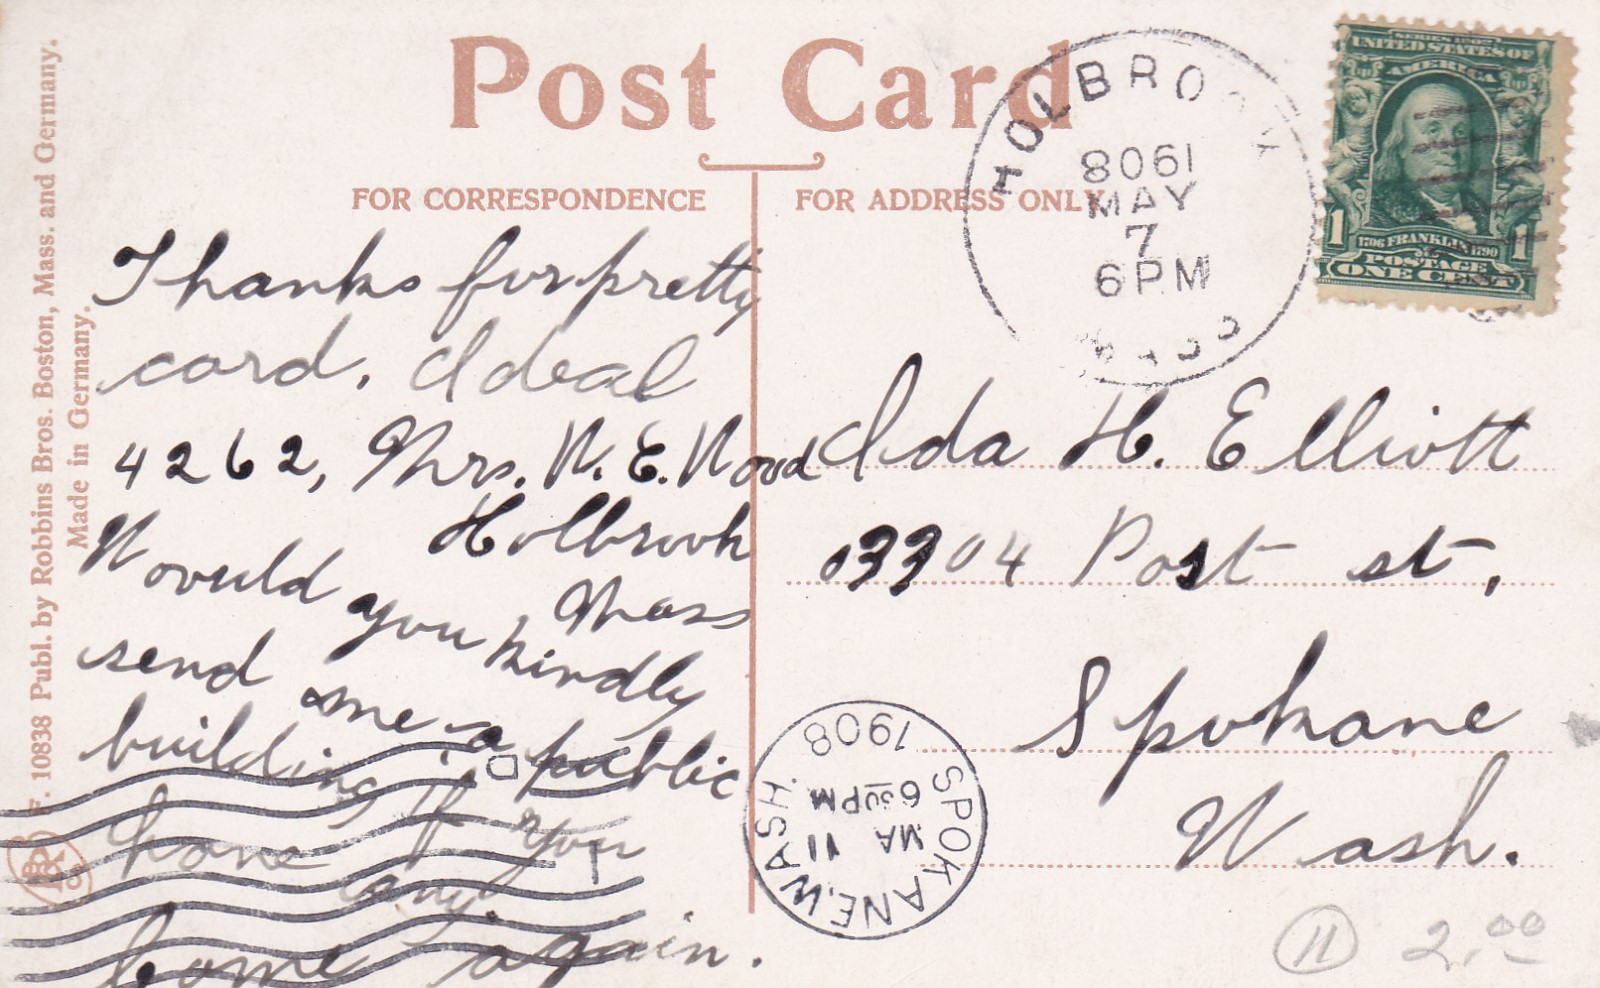 Post Card
FOR CORRESPONDENCE
FOR ADDRESS ONLY
F. 10838 Publ. by Robbins Bros. Boston, Mass. and Germany.
Made in Germany.
Thanks for pretty
card. Ideal
4262, Mrs. W. E. Wood
Holbrook
Mass
Would you kindly
send me a public
building if you
have any.
Come again.
HOLBROOK
1908
MAY
7
6PM
MASS
SERIES 1902
UNITED STATES OF
AMERICA
1 1706 FRANKLIN 1790 1
POSTAGE
ONE CENT
Ida H. Elliott
03304 Post st.,
Spokane
Wash.
SPOKANE, WASH.
MA 11
6 30 PM
1908
11 2.00